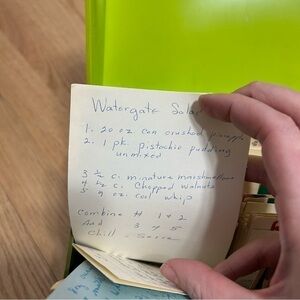 Watergate Sala
1. 20 oz can crushed pineapple
2. 1 pk. pistachio pudding
unmixed
3 ½ c. minature marshmellows
4 ½ c. Chopped walnuts
5 9 oz. cool whip
Combine # 1 + 2
Add 3 4 5
Chill - Serve